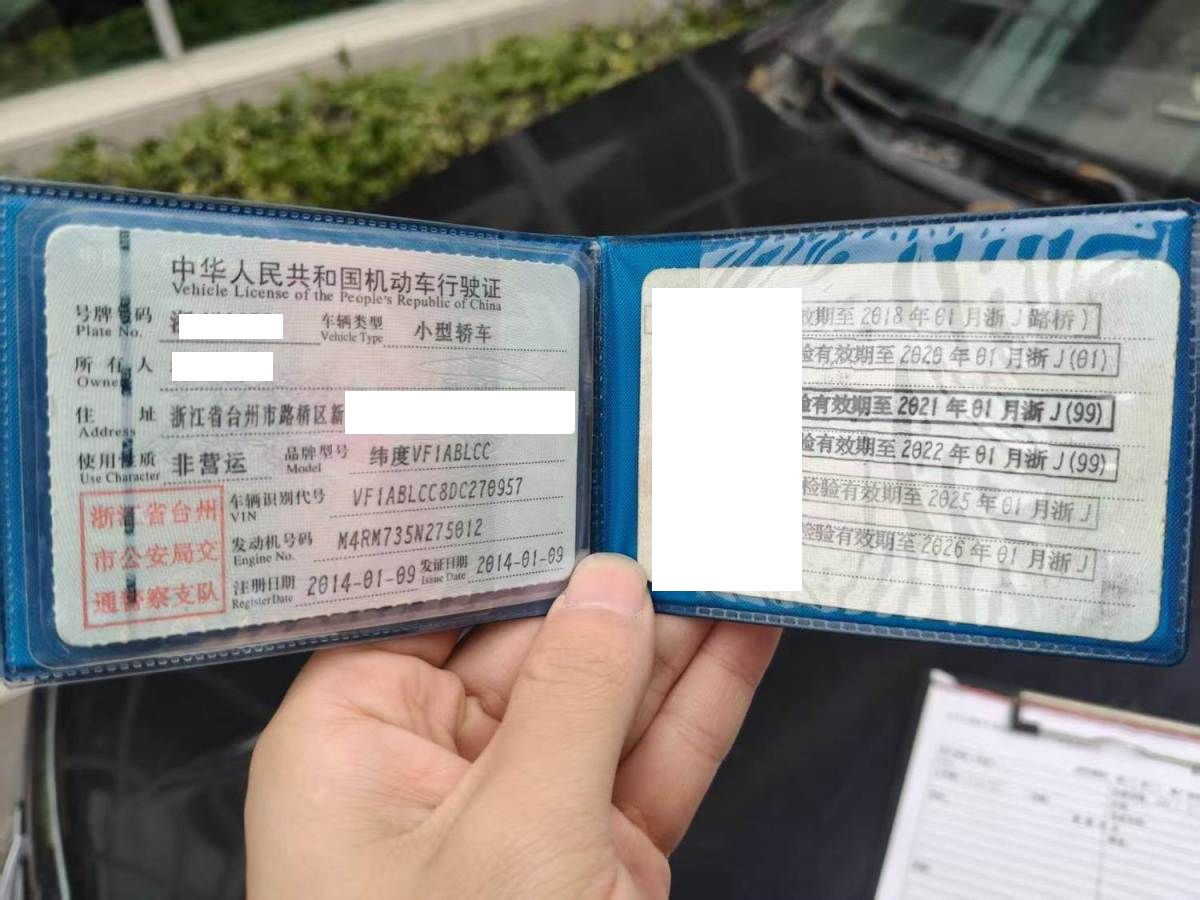 中华人民共和国机动车行驶证
Vehicle License of the People's Republic of China
号牌号码 车辆类型 小型轿车
Plate No. Vehicle Type
所有人
Owner
住址 浙江省台州市路桥区新
Address
使用性质 非营运 品牌型号 纬度VF1ABLCC
Use Character Model
车辆识别代号 VF1ABLCC8DC270957
VIN
发动机号码 M4RM735N275012
Engine No.
注册日期 2014-01-09 发证日期 2014-01-09
Register Date Issue Date
浙江省台州
市公安局交
通警察支队
效期至 2018 年 01 月浙 J 路桥)
验有效期至 2020 年 01 月浙 J(01)
验有效期至 2021 年 01 月浙 J(99)
验有效期至 2022 年 01 月浙 J(99)
检验有效期至 2025 年 01 月浙 J
检验有效期至 2026 年 01 月浙 J